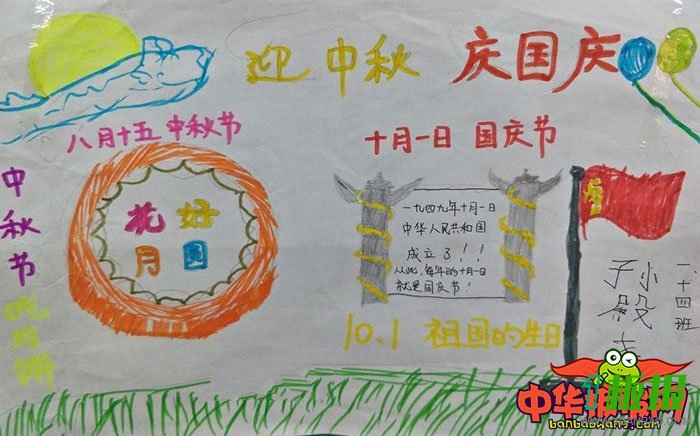 迎中秋 庆国庆
八月十五 中秋节
十月一日 国庆节
中秋节吃月饼
花好
月圆
一九四九年十月一日
中华人民共和国
成立了!!
从此,每年的十月一日
就是国庆节!
10.1 祖国的生日
一十四班
孙
中华
banbaowang.com